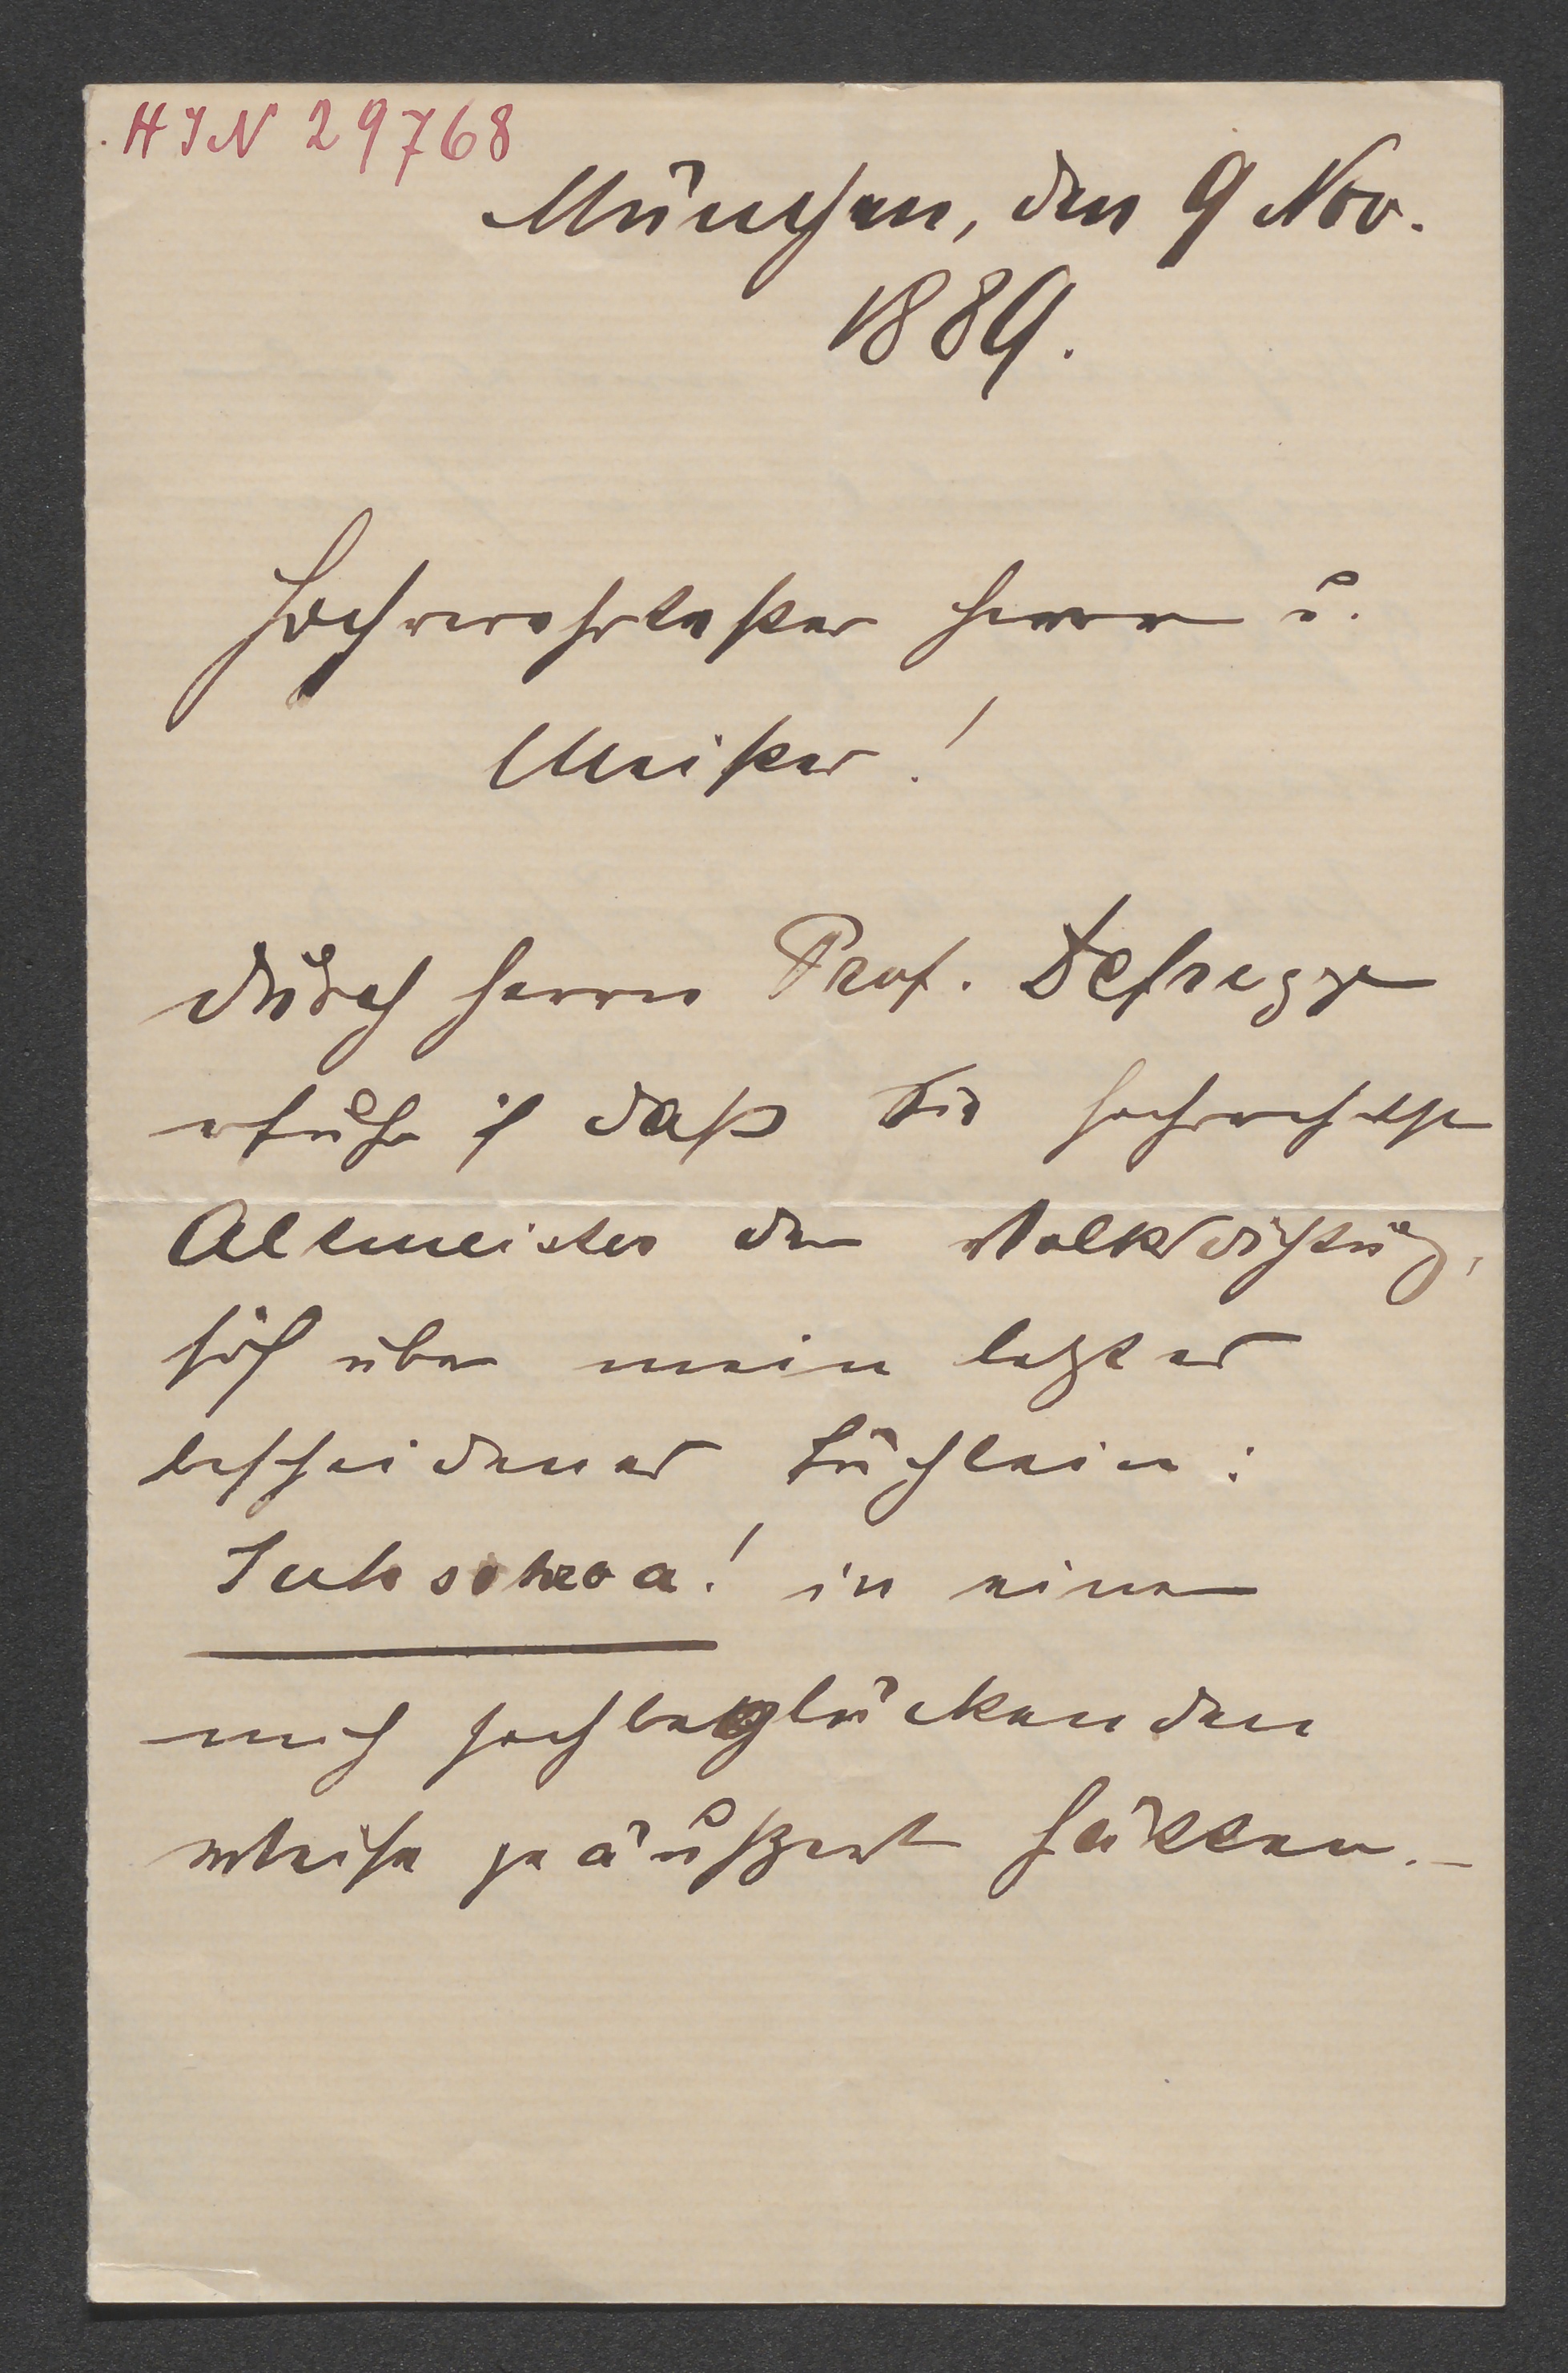 HIN 29768
München, den 9 Nov.
1889.
Hochverehrtester Herr u.
Meister!
Durch Herrn Prof. Defregger
erfuhr ich daß Sie hochverehrtester
Altmeister der Volksdichtung,
sich über mein letztes
bescheidenes Büchlein:
Juhschroa! in einer
mich hochbeglückenden
Weise geäußert hätten.–